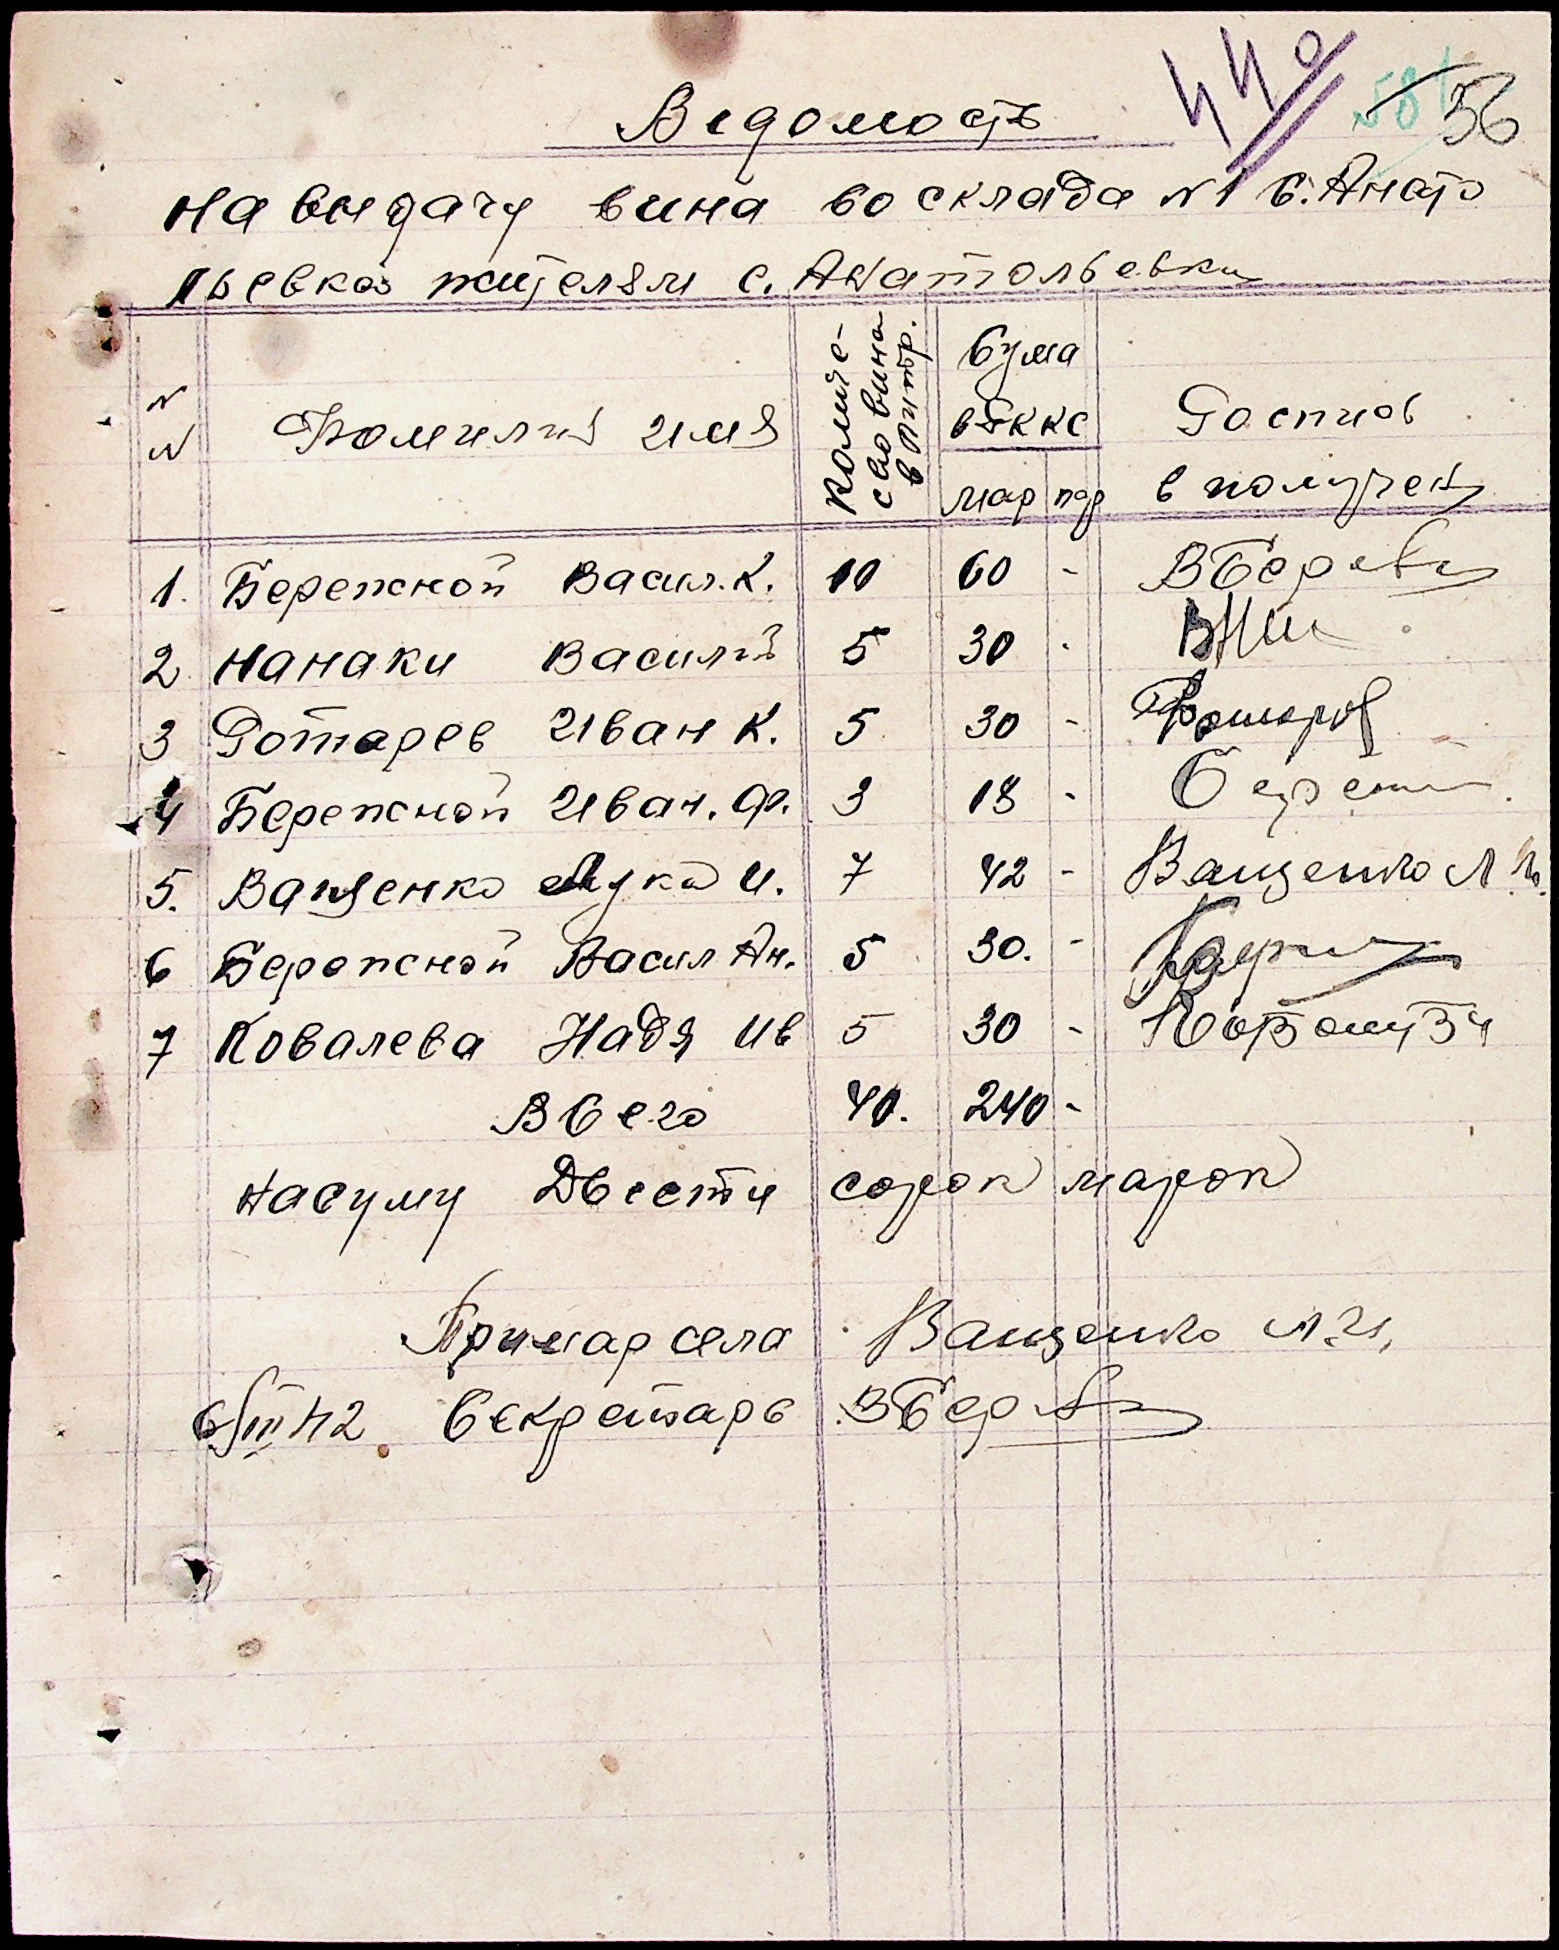 440 58 56
Ведомость
на выдачу вина во склада №1 с. Анато
льевка жителям с. Анатольевки
N N Фамилия имя Количе-сво вина в литр. Сума в RKKS мар пф Роспись в получен
1. Бережной Васил. К. 10 60 - ВБереж
2 Нанаки Василий 5 30 -
3 Ротарев Иван К. 5 30 -
4 Бережной Иван. Ф. 3 18 -
5. Ващенко Лука И. 7 42 - Ващенко Л. И.
6 Бережной Васил Ан. 5 30. -
7 Ковалева Надя Ив 5 30 -
Всего 40. 240 -
на суму Двести сорок марок
Примар села Ващенко Л. И.
6/III 42 Секретарь ВБереж